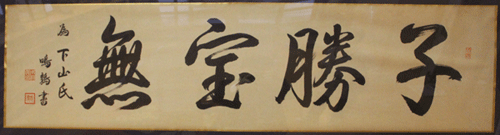 子勝宝無
為下山氏
鳴鶴書